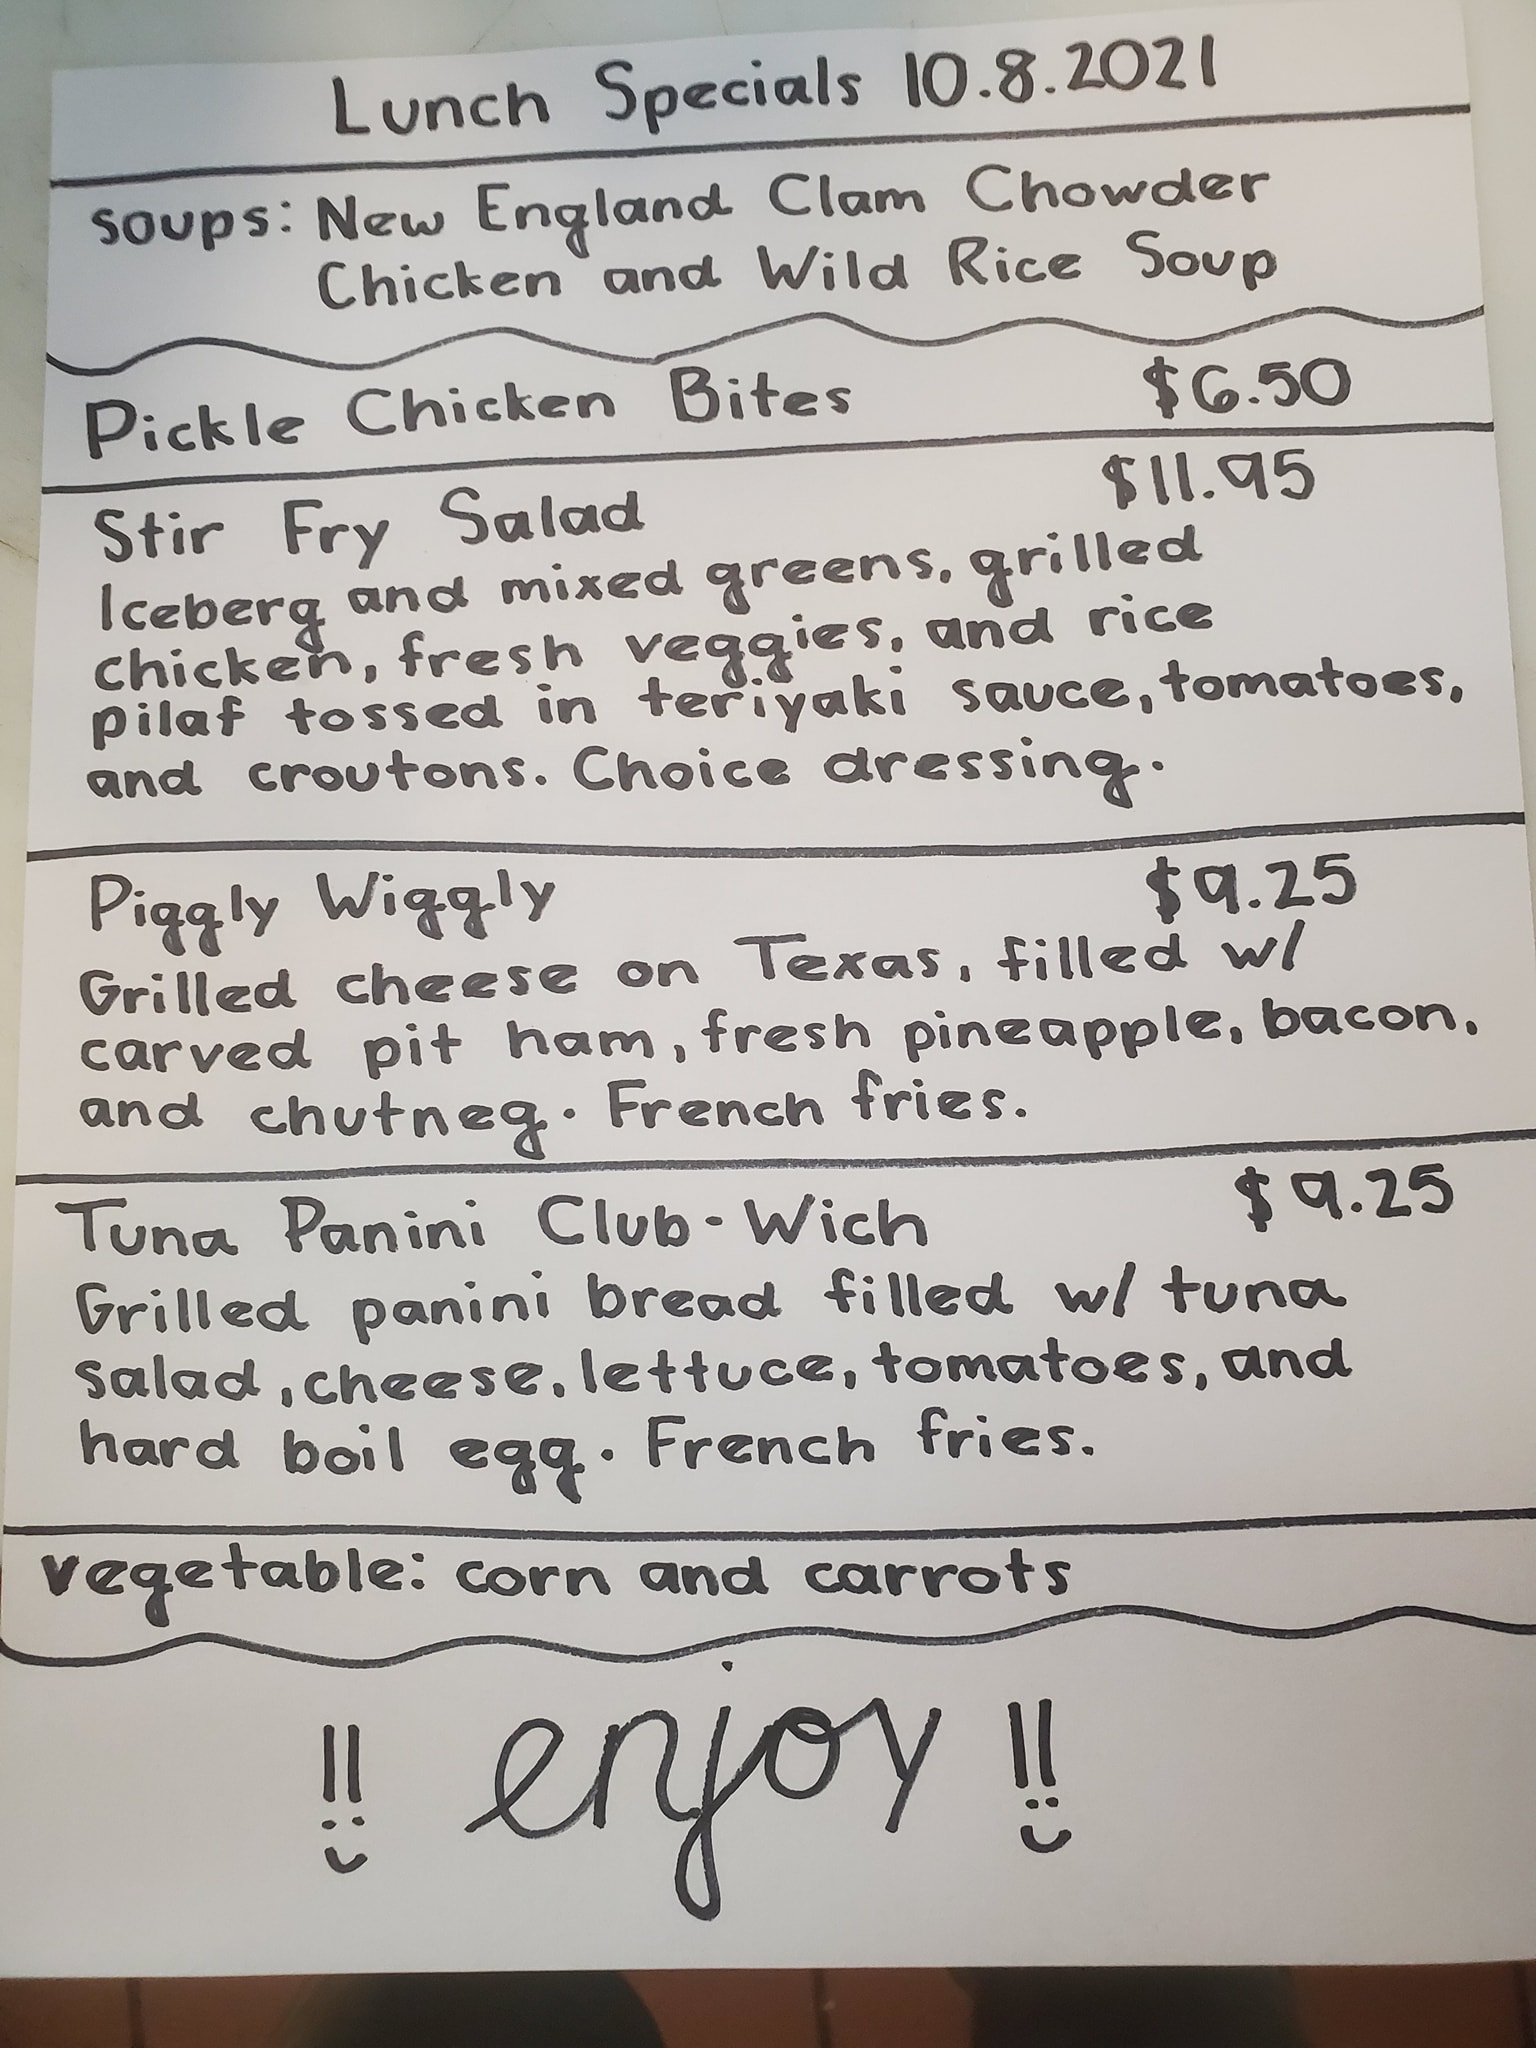 Lunch Specials 10.8.2021
soups: New England Clam Chowder
Chicken and Wild Rice Soup
Pickle Chicken Bites $6.50
Stir Fry Salad $11.95
Iceberg and mixed greens, grilled
chicken, fresh veggies, and rice
pilaf tossed in teriyaki sauce, tomatoes,
and croutons. Choice dressing.
Piggly Wiggly $9.25
Grilled cheese on Texas, filled w/
carved pit ham, fresh pineapple, bacon,
and chutney. French fries.
Tuna Panini Club-Wich $9.25
Grilled panini bread filled w/ tuna
salad, cheese, lettuce, tomatoes, and
hard boil egg. French fries.
vegetable: corn and carrots
!! enjoy !!